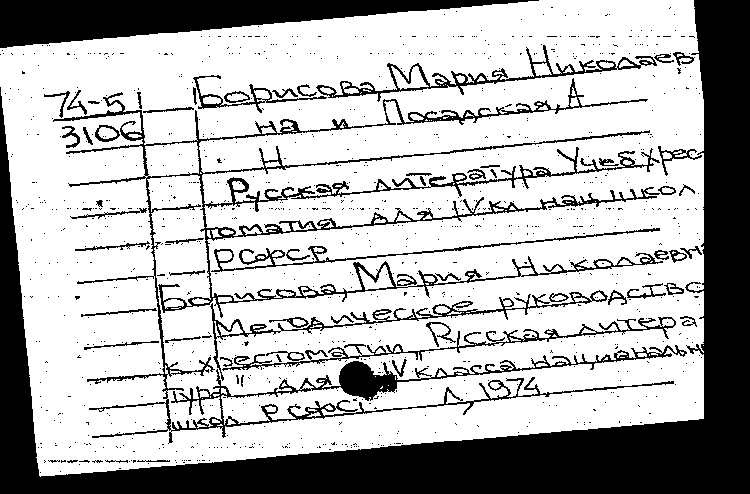 74-5 Борисова, Мария Николаев-
3106 на и Посадская, А
Н
Русская литература Учеб хрес-
томатия для IV кл. нац. школ
РСФСР.
Борисова, Мария Николаевна
Методическое руководство
к хрестоматии "Русская литера-
тура" для IV класса национальн
школ РСФСР Л, 1974.